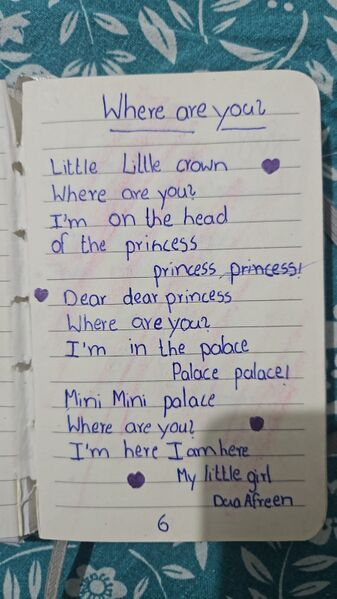 Where are you?
Little Little crown
Where are you?
I'm on the head
of the princess
princess, princess!
Dear dear princess
Where are you?
I'm in the palace
Palace palace!
Mini Mini palace
Where are you?
I'm here I am here
My little girl
Dua Afreen
6